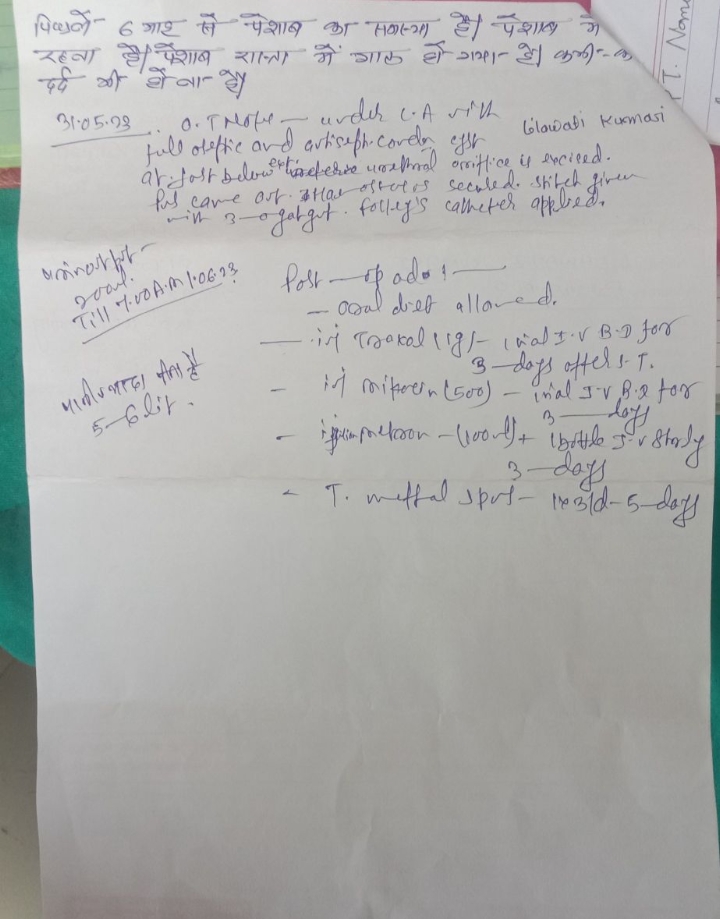 पिछले 6 माह से पेशाब का समस्या है। पेशाब में
रहता है। पेशाब रास्ता में गाठ हो गया है। कभी-क
दर्द भी होता है।
T. Nam
31.05.23 O.T Note — under L.A with
Lilawati Kumari
full aseptic and antiseptic cyst
at just below ext urethral oriffice is excised.
Pus came out. is secured. stitch given
with 3-0 catgut. folley's catheter applied.
Till 7.00 A.M 1.06.23
Post — op adv :—
— oral diet allowed.
— inj (1g) — 1 vial I.V B.D for
3 — days after S.T.
- inj (500) — 1 vial I.V B.D for
3 — days
पानी ज्यादा पीना है
5-6 lit.
- inj — (100ml) 1 bottle I.V
3 — days
- T. — 1x3/d — 5 — days